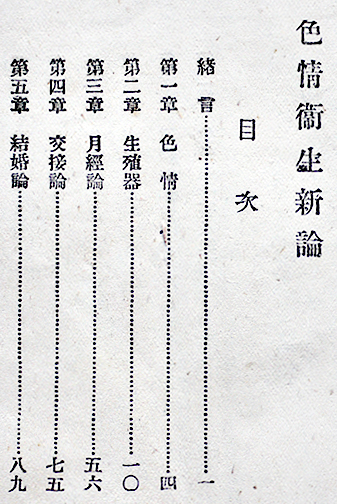 色情衞生新論
目次
緒言……………………一
第一章 色情……………………四
第二章 生殖器……………………一〇
第三章 月經論……………………五六
第四章 交接論……………………七五
第五章 結婚論……………………八九